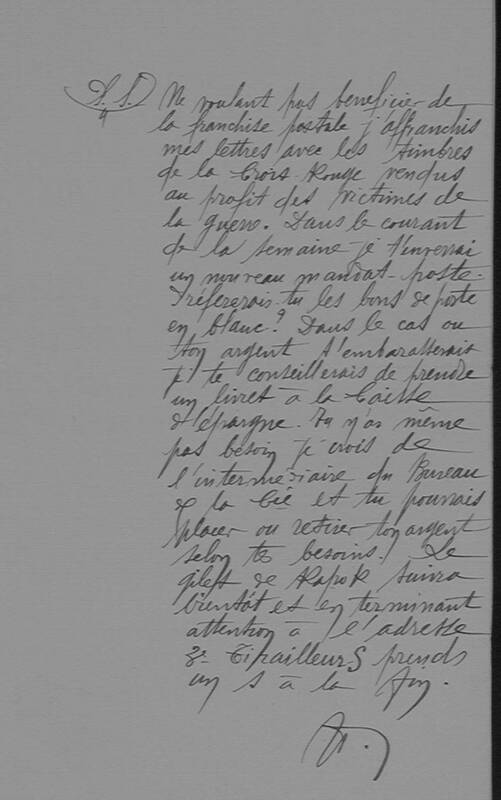 P.S. Ne voulant pas beneficier de
la franchise postale j'affranchis
mes lettres avec les timbres
de la Croix Rouge vendus
au profit des victimes de
la guerre. Dans le courant
de la semaine je t'enverrai
un nouveau mandat-poste.
Préfererais-tu les bons de poste
en blanc? Dans le cas ou
ton argent t'embarasserait
je te conseillerais de prendre
un livret à la Caisse
d'épargne. Tu n'as même
pas besoin je crois de
l'intermediaire du Bureau
de la Cie et tu pourrais
placer ou retirer ton argent
selon tes besoins. Le
gilet de Kapok suivra
bientôt et en terminant
attention à l'adresse
Tirailleurs prends
un s à la fin.